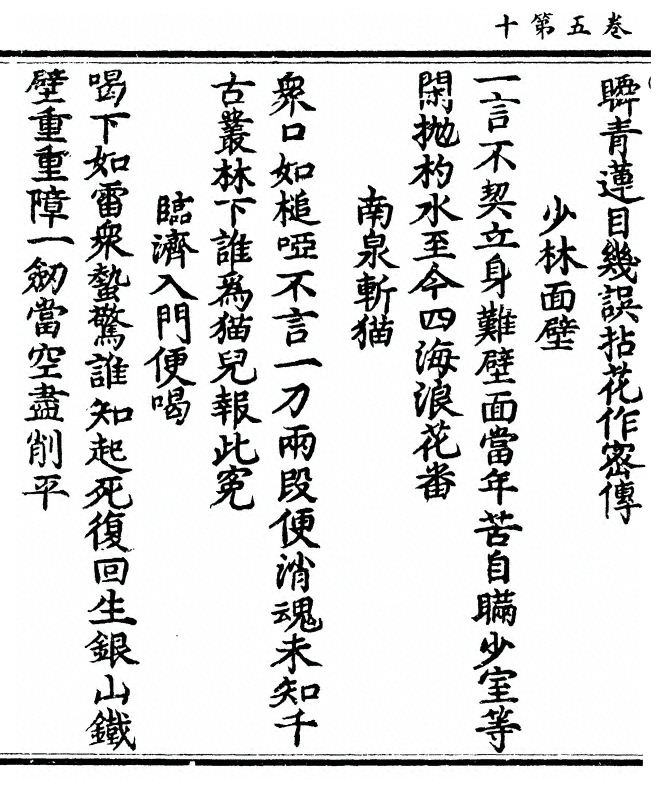 卷五第十
瞬青蓮目幾誤拈花作密傳
少林面壁
一言不契立身難壁面當年苦自瞞少室等
閑抛杓水至今四海浪花番
南泉斬猫
衆口如槌啞不言一刀兩段便消魂未知千
古叢林下誰爲猫兒報此寃
臨濟入門便喝
喝下如雷衆蟄驚誰知起死復回生銀山鐵
壁重重障一劒當空盡削平